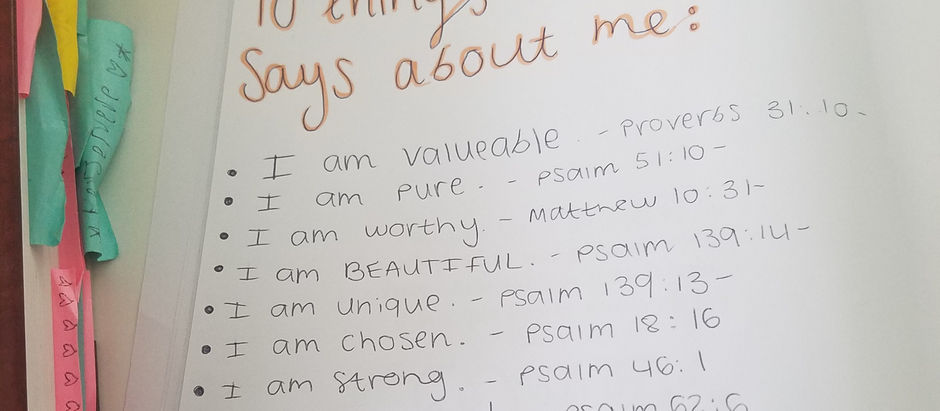 10 things
Says about me:
• I am valueable. - Proverbs 31:10-
• I am pure. - Psalm 51:10-
• I am worthy. - Matthew 10:31-
• I am BEAUTIFUL. - Psalm 139:14-
• I am unique. - Psalm 139:13-
• I am chosen. - Psalm 18:16
• I am strong. - Psalm 46:1
Psalm 62:6